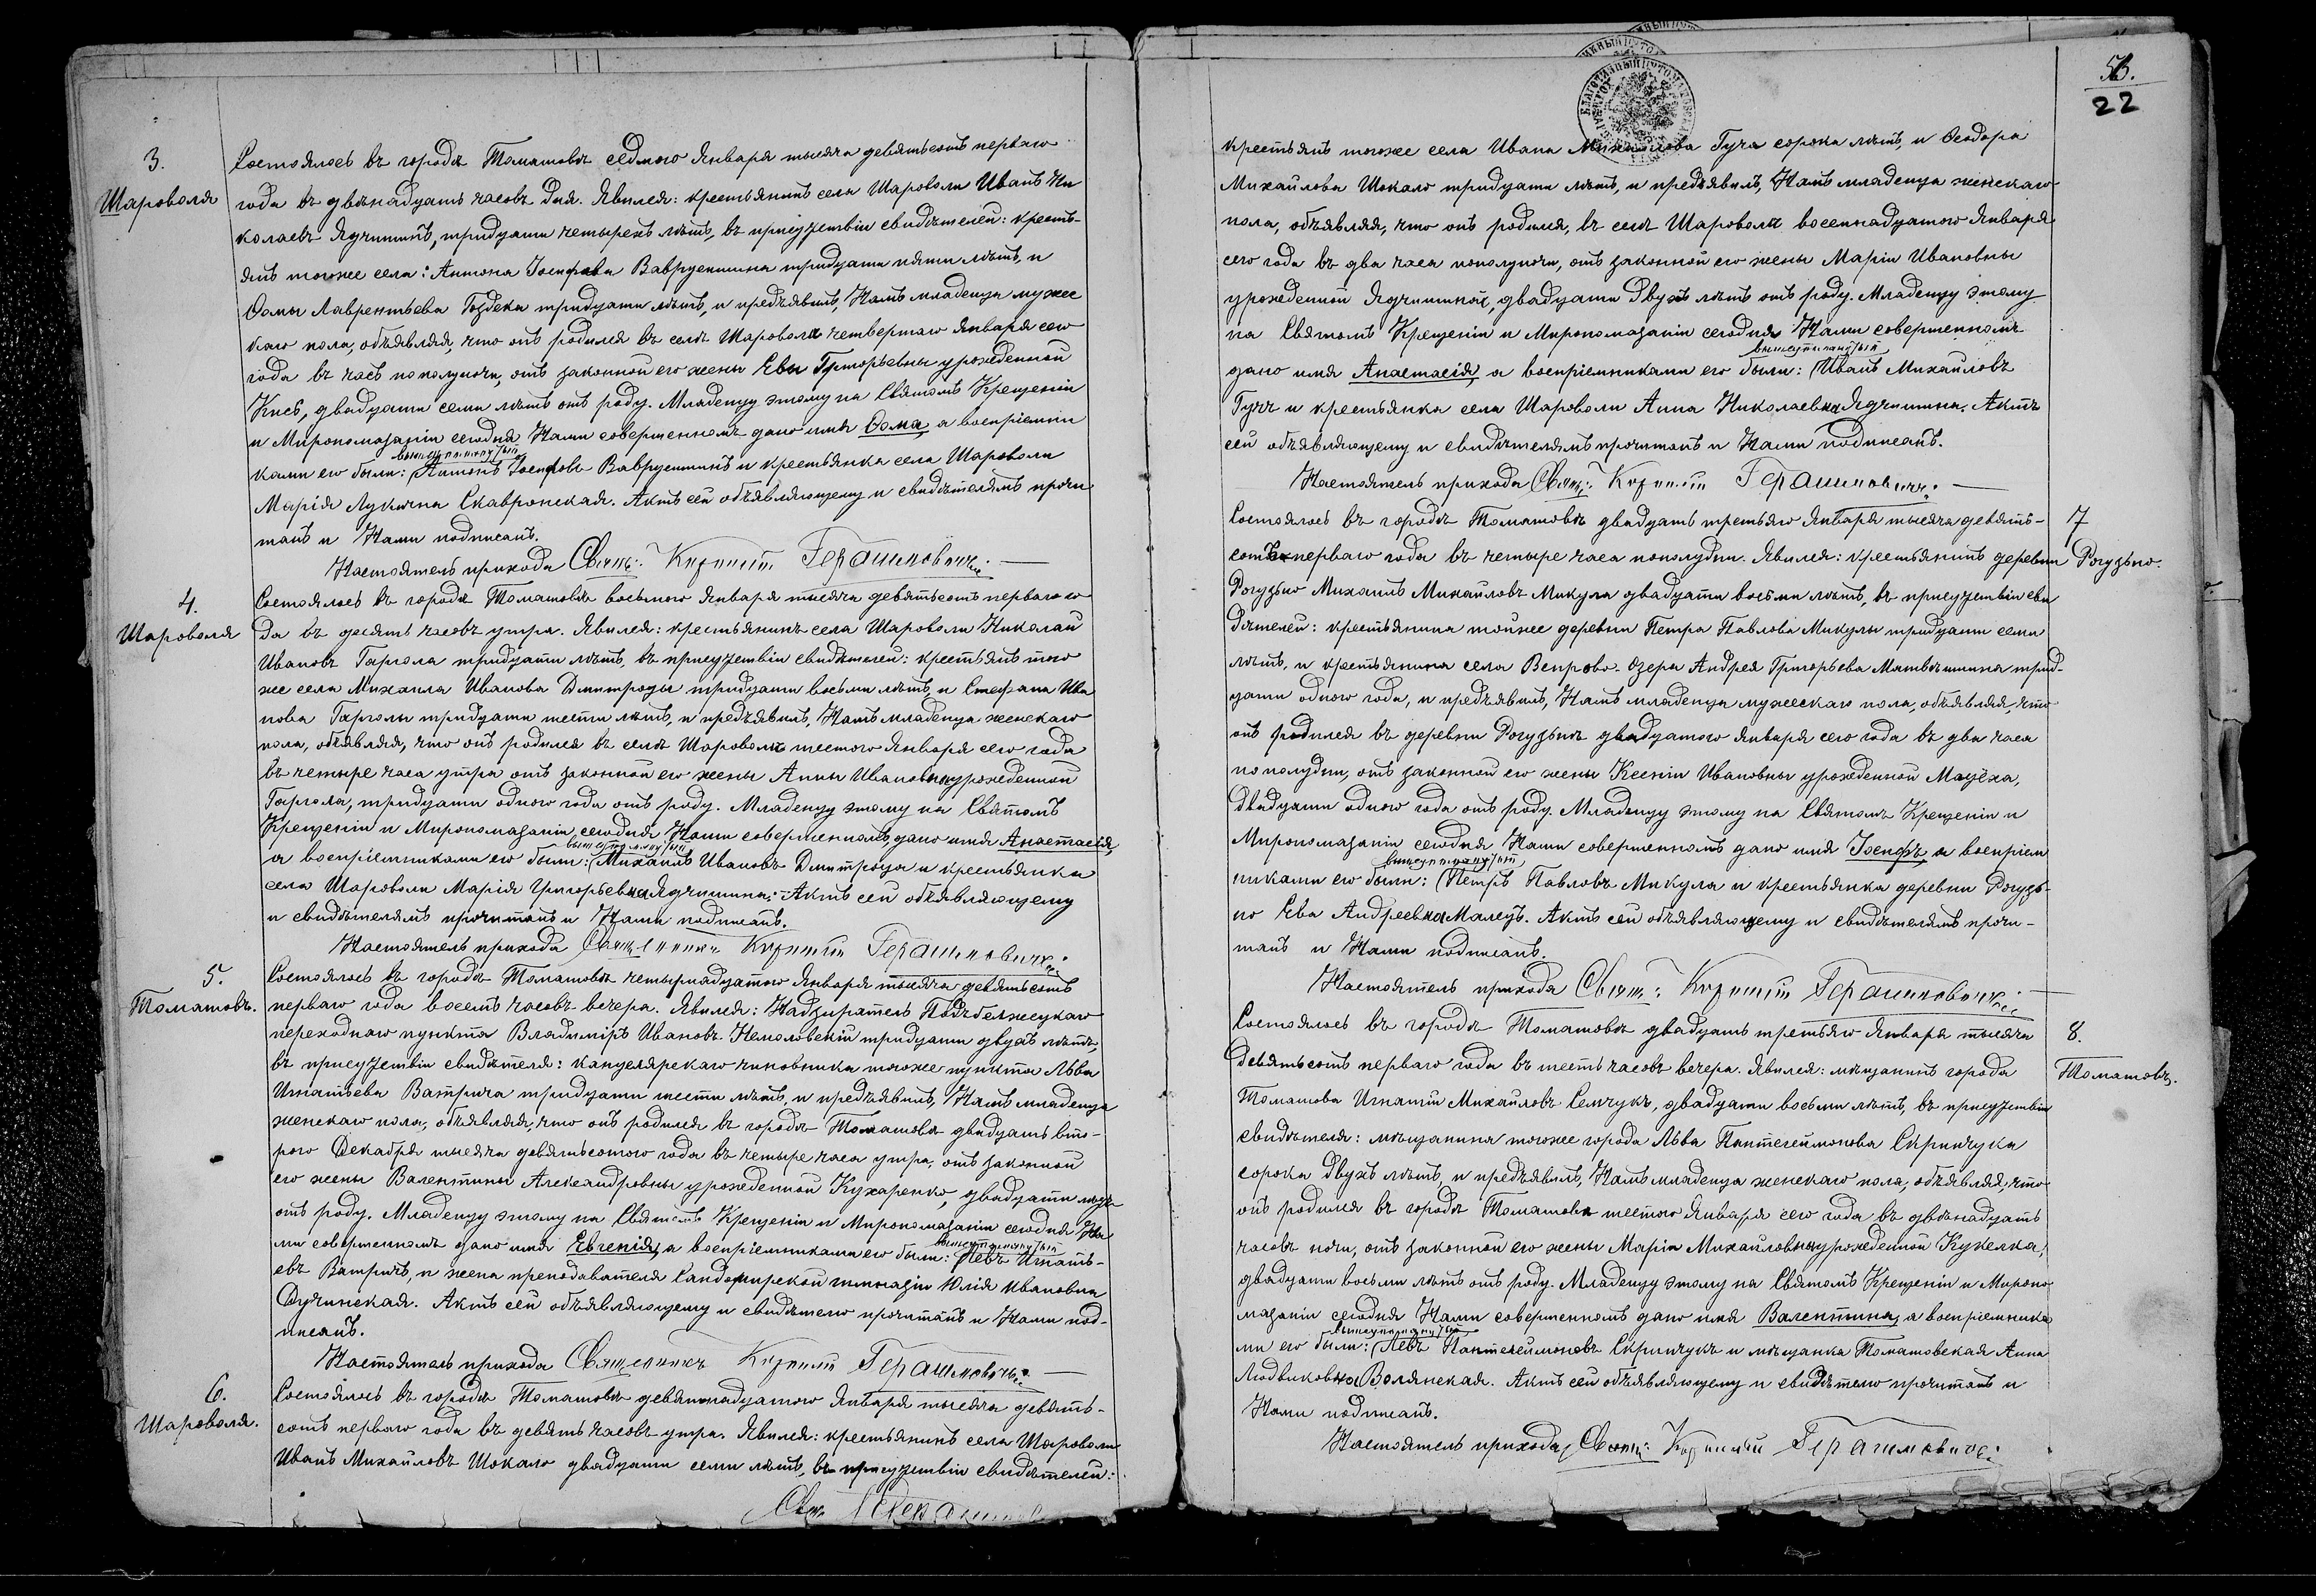 3.
Шароволя
Состоялось въ городѣ Томашовѣ седьмого Января тысяча девятьсотъ перваго
года въ двѣнадцать часовъ дня. Явился: крестьянинъ села Шароволи Иванъ Ни
колаевъ Ядчишинъ, тридцати четырехъ лѣтъ, въ присутствіи свидѣтелей: кресть-
янъ тогоже села: Антона Іосифова Ваврусишина тридцати пяти лѣтъ, и
Ѳомы Лаврентьева Гоздека тридцати лѣтъ, и предъявилъ, Намъ младенца мужес
каго пола, объявляя, что онъ родился въ селѣ Шароволѣ четвертаго Января сего
года въ часъ пополуночи, отъ законной его жены Евы Григорьевны урожденной
Кисъ, двадцати семи лѣтъ отъ роду. Младенцу этому на Святомъ Крещеніи
и Миропомазаніи сегодня Нами совершенномъ дано имя Ѳома, а воспріемни
вышеупомянутый
ками его были: Антонъ Іосифовъ Ваврусишинъ и крестьянка села Шароволи
Марія Лукична Скавронская. Актъ сей объявляющему и свидѣтелямъ прочи
танъ и Нами подписанъ.
Настоятель прихода Свящ: Корнилій Герашиновичъ
4.
Шароволя
Состоялось въ городѣ Томашовѣ восьмого Января тысяча девятьсотъ перваго го
да въ десять часовъ утра. Явился: крестьянинъ села Шароволи Николай
Ивановъ Гаргола тридцати лѣтъ, въ присутствіи свидѣтелей: крестьянъ того
же села Михаила Иванова Дмитроцы тридцати восьми лѣтъ, и Стефана Ива
нова Гарголы тридцати шести лѣтъ, и предъявилъ, Намъ младенца женскаго
пола, объявляя, что онъ родился въ селѣ Шароволѣ шестого Января сего года
въ четыре часа утра отъ законной его жены Анны Ивановны урожденной
Гаргола, тридцати одного года отъ роду. Младенцу этому на Святомъ
Крещеніи и Миропомазаніи сегодня Нами совершенномъ, дано имя Анастасія,
вышеупомянутый
а воспріемниками его были: Михаилъ Ивановъ Дмитроца и крестьянка
села Шароволи Марія Григорьевна Ядчишина. Актъ сей объявляющему
и свидѣтелямъ прочитанъ и Нами подписанъ.
Настоятель прихода Священникъ Корнилій Герашиновичъ
5.
Томашовъ.
Состоялось въ городѣ Томашовѣ четырнадцатого Января тысяча девятьсотъ
перваго года восемь часовъ вечера. Явился: Надзиратель Подъбелжецкаго
переходнаго пункта Владиміръ Ивановъ тридцати двухъ лѣтъ,
въ присутствіи свидѣтеля: канцелярскаго чиновника тогоже пункта Льва
Игнатьева Ватрича тридцати шести лѣтъ, и предъявилъ, Намъ младенца
женскаго пола, объявляя, что онъ родился въ городѣ Томашовѣ двадцать вто-
рого Декабря тысяча девятьсотого года въ четыре часа утра, отъ законной
его жены Валентины Александровны урожденной Кухаренко, двадцати лѣтъ
отъ роду. Младенцу этому на Святомъ Крещеніи и Миропомазаніи сегодня На
вышеупомянутый
ми совершенномъ дано имя Евгенія, а воспріемниками его были: Левъ Игнать-
евъ Ватричъ, и жена преподавателя Сандомирской гимназіи Юлія Ивановна
Дучинская. Актъ сей объявляющему и свидѣтелю прочитанъ и Нами под-
писанъ.
Настоятель прихода Священникъ Корнилій Герашиновичъ
6.
Шароволя.
Состоялось въ городѣ Томашовѣ девятнадцатого Января тысяча девять-
сотъ перваго года въ девять часовъ утра. Явился: крестьянинъ села Шароволи
Иванъ Михайловъ Шокало двадцати семи лѣтъ, въ присутствіи свидѣтелей:
22
крестьянъ тогоже села Ивана Михайлова Гуча сорока лѣтъ, и Ѳеодора
Михайлова Шокало тридцати лѣтъ, и предъявилъ, Намъ младенца женскаго
пола, объявляя, что онъ родился, въ селѣ Шароволѣ восемнадцатого Января
сего года въ два часа пополуночи, отъ законной его жены Маріи Ивановны
урожденной Ядчишиной, двадцати двухъ лѣтъ отъ роду. Младенцу этому
на Святомъ Крещеніи и Миропомазаніи сегодня Нами совершенномъ
вышеупомянутый
дано имя Анастасія, а воспріемниками его были: Иванъ Михайловъ
Гучъ и крестьянка села Шароволи Анна Николаевна Ядчишина. Актъ
сей объявляющему и свидѣтелямъ прочитанъ и Нами подписанъ.
Настоятель прихода Свящ: Корнилій Герашиновичъ
7
Рогузьно.
Состоялось въ городѣ Томашовѣ двадцать третьяго Января тысяча девять-
сотъ перваго года въ четыре часа пополудни. Явился: крестьянинъ деревни
Рогузьно Михаилъ Михайловъ Микула двадцати восьми лѣтъ, въ присутствіи сви
дѣтелей: крестьянина тойже деревни Петра Павлова Микулы тридцати семи
лѣтъ, и крестьянина села Вепрово-Озера Андрея Григорьева Матвѣишина трид-
цати одного года, и предъявилъ, Намъ младенца мужескаго пола, объявляя, что
онъ родился въ деревни Рогузьнѣ двадцатого Января сего года въ два часа
пополудни, отъ законной его жены Ксеніи Ивановны урожденной Мацёха,
двадцати одного года отъ роду. Младенцу этому на Святомъ Крещеніи и
Миропомазаніи сегодня Нами совершенномъ дано имя Іосифъ а воспріем
вышеупомянутый
никами его были: Петръ Павловъ Микула и крестьянка деревни Рогузь-
но Ева Андреевна Малецъ. Актъ сей объявляющему и свидѣтелямъ прочи-
танъ и Нами подписанъ.
Настоятель прихода Свящ: Корнилій Герашиновичъ
8.
Томашовъ.
Состоялось въ городѣ Томашовѣ двадцать третьяго Января тысяча
девятьсотъ перваго года въ шесть часовъ вечера. Явился: мѣщанинъ города
Томашова Игнатій Михайловъ Семчукъ, двадцати восьми лѣтъ, въ присутствіи
свидѣтеля: мѣщанина тогоже города Льва Пантелеймонова Скринчука
сорока двухъ лѣтъ, и предъявилъ, Намъ младенца женскаго пола, объявляя, что
онъ родился въ городѣ Томашовѣ шестого Января сего года въ двѣнадцать
часовъ ночи, отъ законной его жены Маріи Михайловны урожденной Кукелка,
двадцати восьми лѣтъ отъ роду. Младенцу этому на Святомъ Крещеніи и Миропо
мазаніи сегодня Нами совершенномъ дано имя Валентина, а воспріемника
вышеупомянутый
ми его были: Левъ Пантелеймоновъ Скринчукъ и мѣщанка Томашовская Анна
Людвиковна Волянская. Актъ сей объявляющему и свидѣтелю прочитанъ и
Нами подписанъ.
Настоятель прихода, Свящ: Корнилій Герашиновичъ